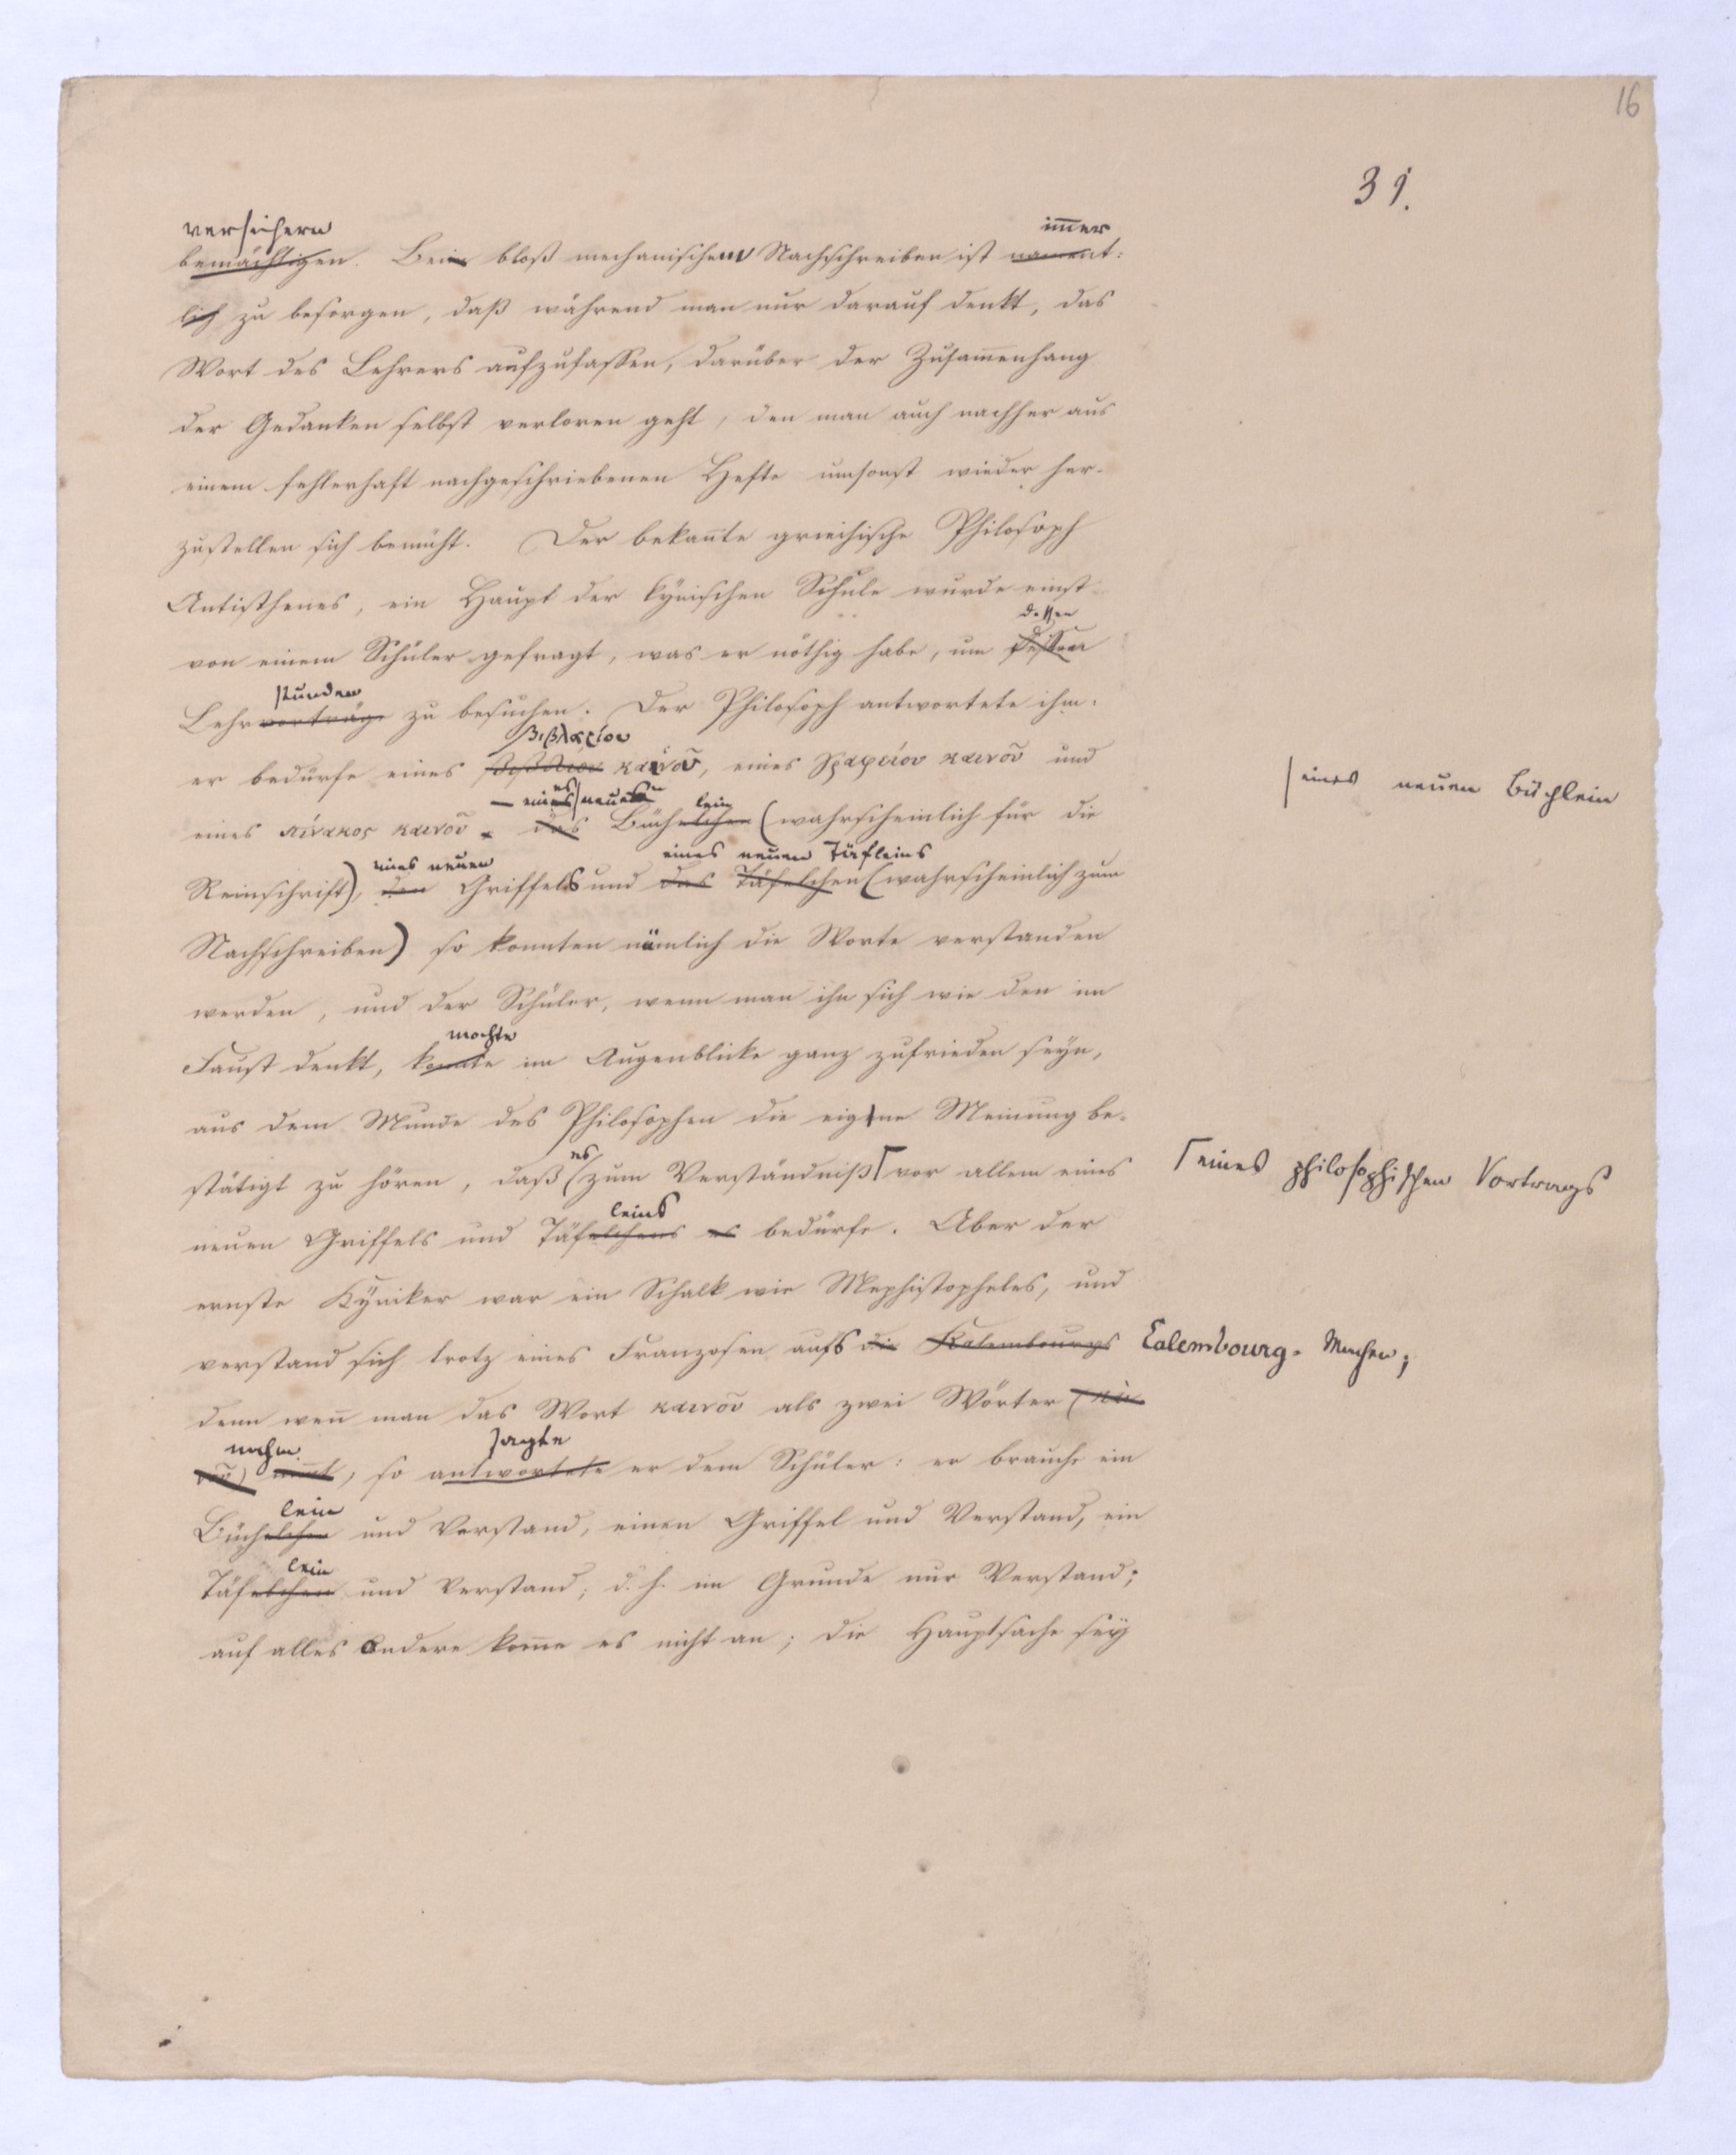 16
31.
versichern immer
bemächtigen. Beim bloß mechanischen Nachschreiben ist nament:
lich zu besorgen, daß während man nur darauf denkt, das
Wort des Lehrers aufzufassen, darüber der Zusam̅enhang
der Gedanken selbst verloren geht, den man auch nachher aus
einem fehlerhaft nachgeschriebenen Hefte umsonst wieder her-
zustellen sich bemüht. Der bekan̅te griechische Philosoph
Antisthenes, ein Haupt der kynischen Schule wurde einst
dessen
von einem Schüler gefragt, was er nöthig habe, um
stunden
Lehrvorträge zu besuchen. Der Philosoph antwortete ihm:
βιβλαρίου
er bedürfe eines καινοῦ, eines γραφείου καινοῦ und
— eines neuen lein | eines neuen Büchlein
eines πίνακος καινοῦ - das Büchelchen (wahrscheinlich für die
eines neuen eines neuen Täfleins
Reinschrift), den Griffels und das Täfelchen (wahrscheinlich zum
Nachschreiben) so konnten nämlich die Worte verstanden
werden, und der Schüler, wenn man ihn sich wie den im
mochte
Faust denkt, konnte im Augenblicke ganz zufrieden seyn,
aus dem Munde des Philosophen die eigene Meinung be-
es
stätigt zu hören, daß zum Verständniß ⌈ vor allem eines ⌈ eines philosophischen Vortrags
leins
neuen Griffels und Täfelchens es bedürfe. Aber der
ernste Kyniker war ein Schalk wie Mephistopheles, und
verstand sich trotz eines Franzosen aufs die Kalembourgs Calembourg-Machen;
denn wen̅ man das Wort καινοῦ als zwei Wörter (καὶ
nahm sagte
νοῦ) nim̅t, so antwortete er dem Schüler: er brauche ein
lein
Büchelchen und Verstand, einen Griffel und Verstand, ein
lein
Täfelchen und Verstand; d. h. im Grunde nur Verstand;
auf alles Andere kom̅e es nicht an; die Hauptsache sey